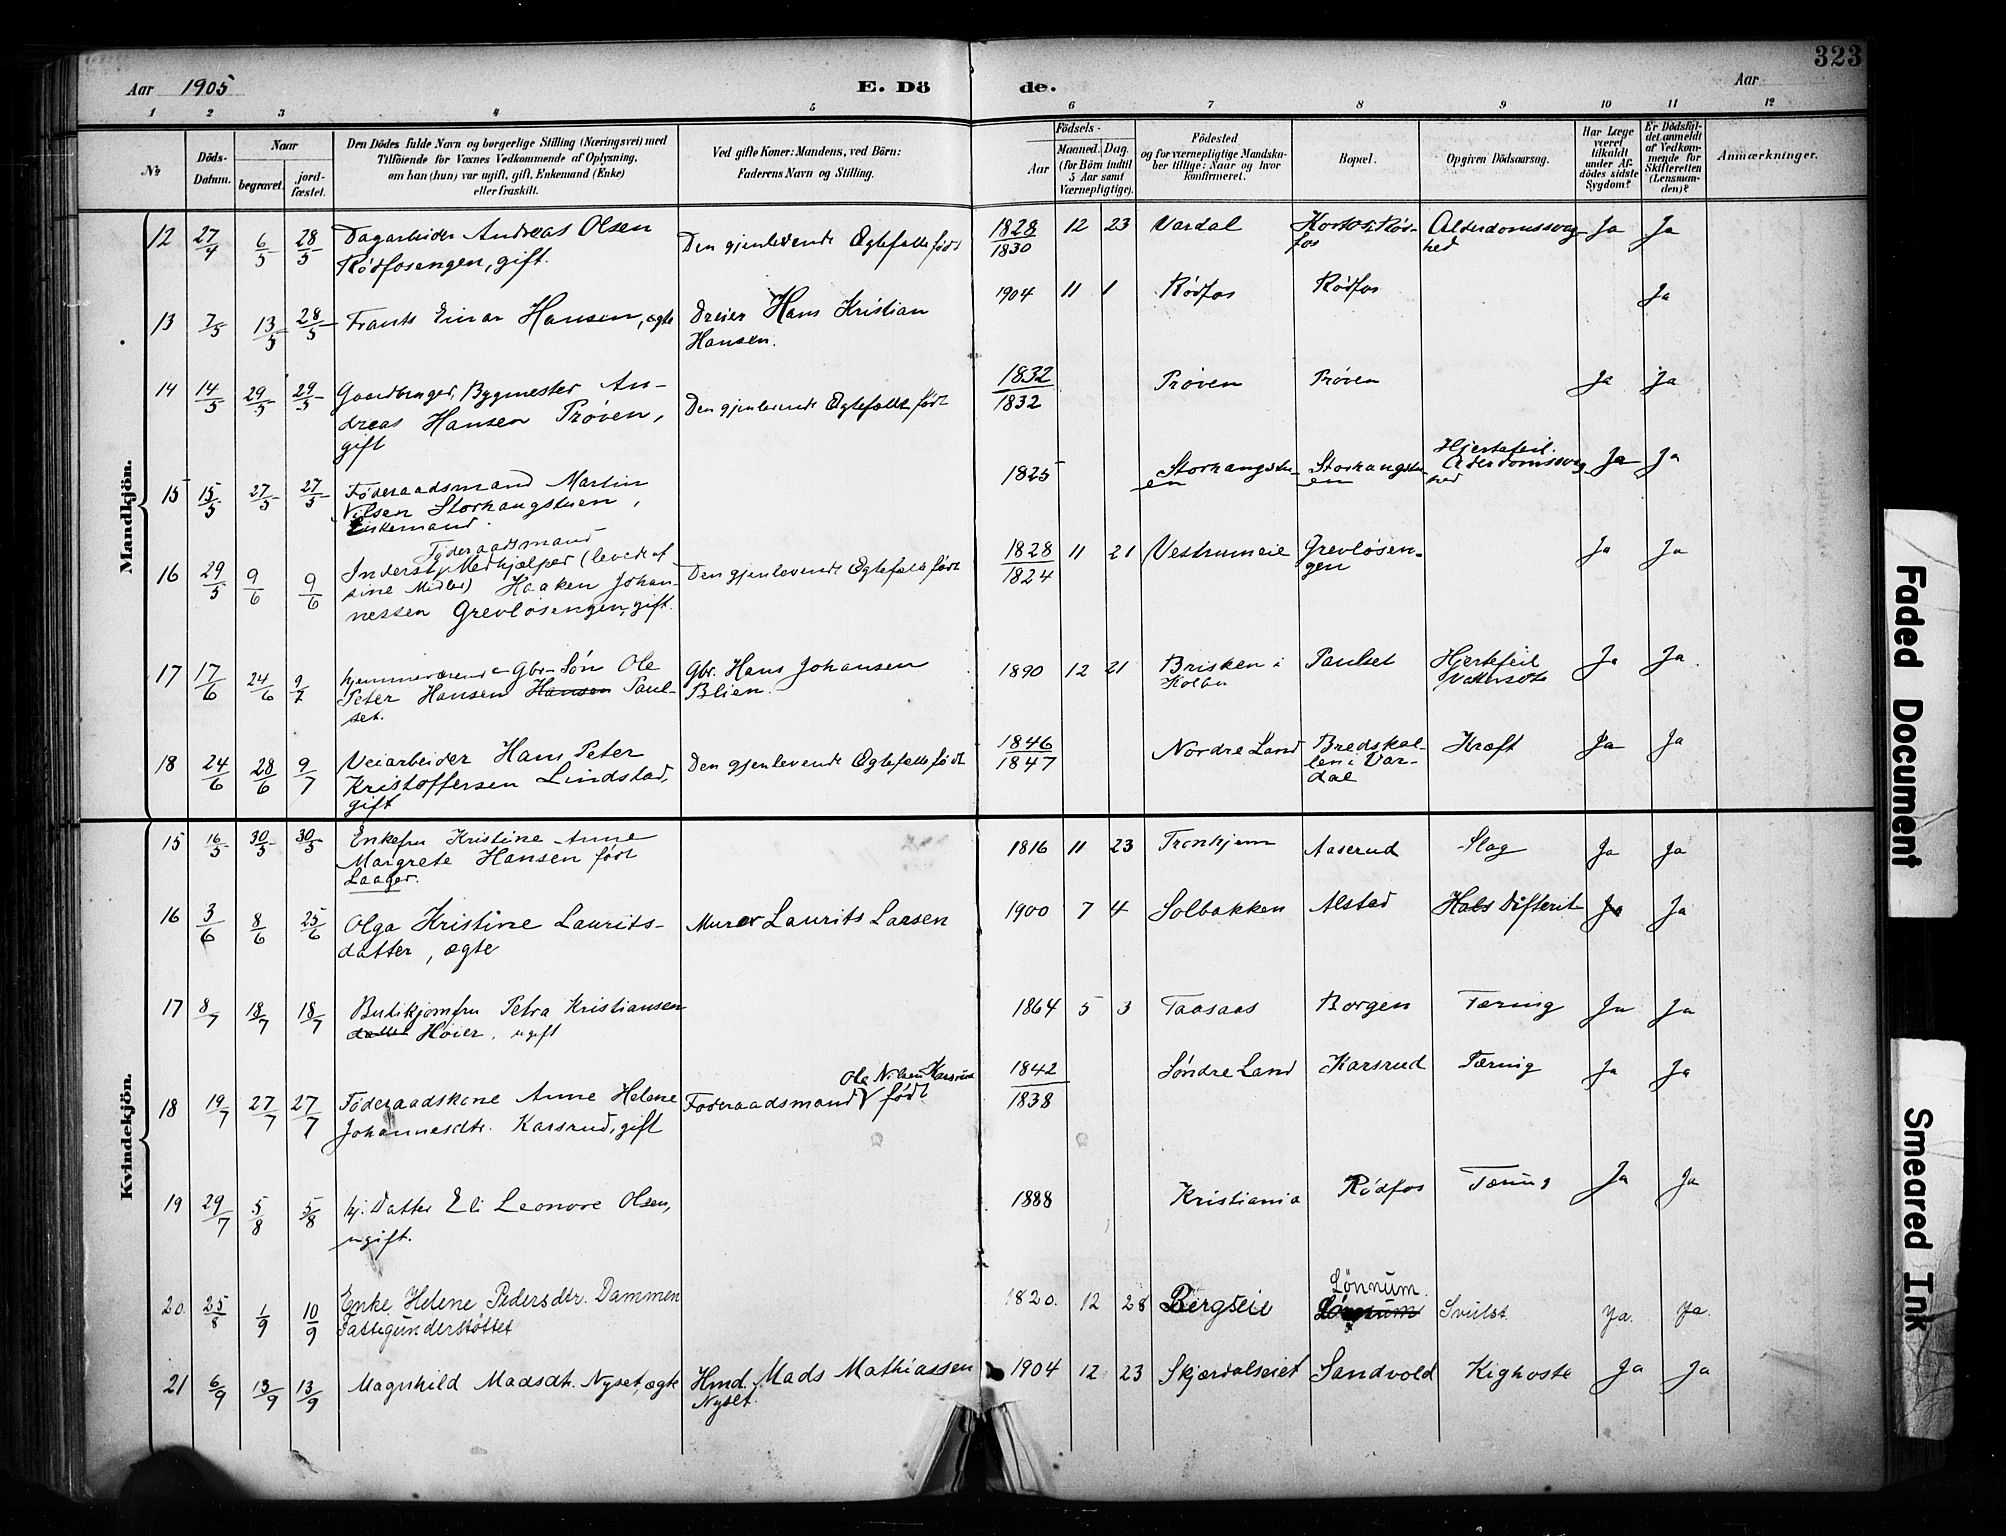 323
Aar 1905
E. Dö
de.
Aar
1 2 3 4 5 6 7 8 9 10 11 12
No
Döds-
Datum.
Naar
begravet.
jord-
fæstet.
Den Dödes fulde Navn og borgerlige Stilling (Næringsvei) med
Tilföiende for Voxnes Vedkommende af Oplysning,
om han (hun) var ugift, gift, Enkemand (Enke)
eller fraskilt.
Ved gifte Koner: Mandens, ved Börn:
Faderens Navn og Stilling.
Födsels-
Aar
Maaned. Dag.
(for Börn indtil
5 Aar samt
Værnepligtige).
Födested
og for værnepligtige Mandska-
ber tillige: Naar og hvor
konfirmeret.
Bopæl.
Opgiven Dödsaarsag.
Har Læge
været
tilkaldt
under Af-
dödes sidste
Sygdom?
Er Dödsfal-
det anmeldt
af Vedkom-
mende for
Skifteretten
(Lensman-
den)?
Anmærkninger.
Mandkjön.
12 27/4 6/5 28/5 Dagarbeider Andreas Olsen
Rødfosengen, gift.
Den gjenlevende Ægtefælle født
1828/1830 12 23 Vardal
Alderdomssvag-
hed
Ja Ja
13 7/5 13/5 28/5 Frants Einar Hansen, ægte
Dreier Hans Kristian
Hansen.
1904 11 1 Rødfos Rødfos Ja
14 14/5 29/5 29/5 Gaardbruger, Bygmester An-
dreas Hansen Prøven,
gift
Den gjenlevende Ægtefælle født
1832/1832 Prøven Prøven Ja Ja
15 15/5 27/5 27/5 Føderaadsmand Martin
Nilsen Storhaugstuen,
Enkemand.
1825 Storhaugstu-
en
Storhaugstu-
en
Hjertefeil.
Alderdomssvag-
hed
Ja Ja
16 29/5 9/6 9/6 Føderaadsmand
Inderst, Medhjælper (levede af
sine Midler) Haaken Johan-
nessen Grevløsengen, gift.
Den gjenlevende Ægtefælle født
1828/1824 11 21 Vestrumeie Grevløsen-
gen
Ja Ja
17 17/6 24/6 9/7 hjemmeværende Gbr-Søn Ole
Peter Hansen Hansen Paul-
set.
Gbr. Hans Johansen
Blien.
1890 12 21 Brisken i
Kolbu
Paulset Hjertefeil
Vattersot
Ja Ja
18 24/6 28/6 9/7 Veiarbeider Hans Peter
Kristoffersen Lindstad,
gift
Den gjenlevende Ægtefælle født
1846/1847 Nordre Land Bredskal-
len i Var-
dal
Kræft Ja Ja
Kvindekjön.
15 16/5 30/5 30/5 Enkefru Kristine Anne
Margrete Hansen født
Laager.
1816 11 23 Tronhjem Aaserud Slag Ja Ja
16 3/6 8/6 25/6 Olga Kristine Laurits-
datter, ægte
Murer Laurits Larsen
1900 7 4 Solbakken Alstad Hals Difterit Ja Ja
17 8/7 18/7 18/7 Butikjomfru Petra Kristiansen
datter Høier, ugift
1864 5 3 Taasaas Borgen Tæring Ja Ja
18 19/7 27/7 27/7 Føderaadskone Anne Helene
Johannesdtr. Karsrud, gift
Ole Nilsen Karsrud
Føderaadsmand V født
1842/1838 Søndre Land Karsrud Tæring Ja Ja
19 29/7 5/8 5/8 hj. Datter Eli Leonore Olsen,
ugift.
1888 Kristiania Rødfos Tæring Ja Ja
20 25/8 1/9 10/9 Enke Helene Pedersdtr. Dammen
Fattigunderstøttet
1820. 12 28 Bergseie Lönnum.
Svulst. Ja. Ja.
21 6/9 13/9 13/9 Magnhild Madsdt. Nyset, ægte
Hmd. Mads Mathiassen
Nyset.
1904 12 23 Skjærdalseiet Sandvold Kighoste Ja Ja
Faded Document
Smeared Ink